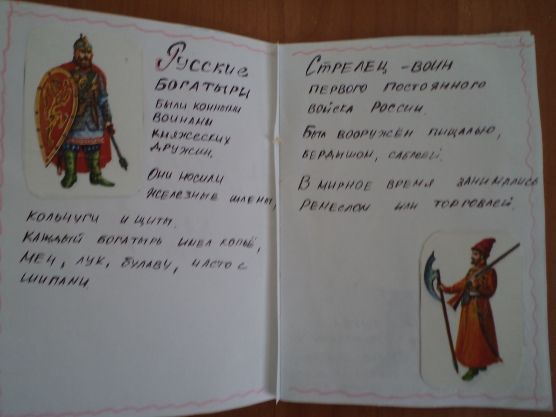 Русские
богатыри
были конными
воинами
княжеских
дружин.
Они носили
железные шлемы,
кольчуги и щиты.
Каждый богатырь имел копьё,
меч, лук, булаву, часто с
шипами
Стрелец - воин
первого постоянного
войска России.
Был вооружён пищалью,
бердышом, саблей.
В мирное время занимались
ремеслом или торговлей